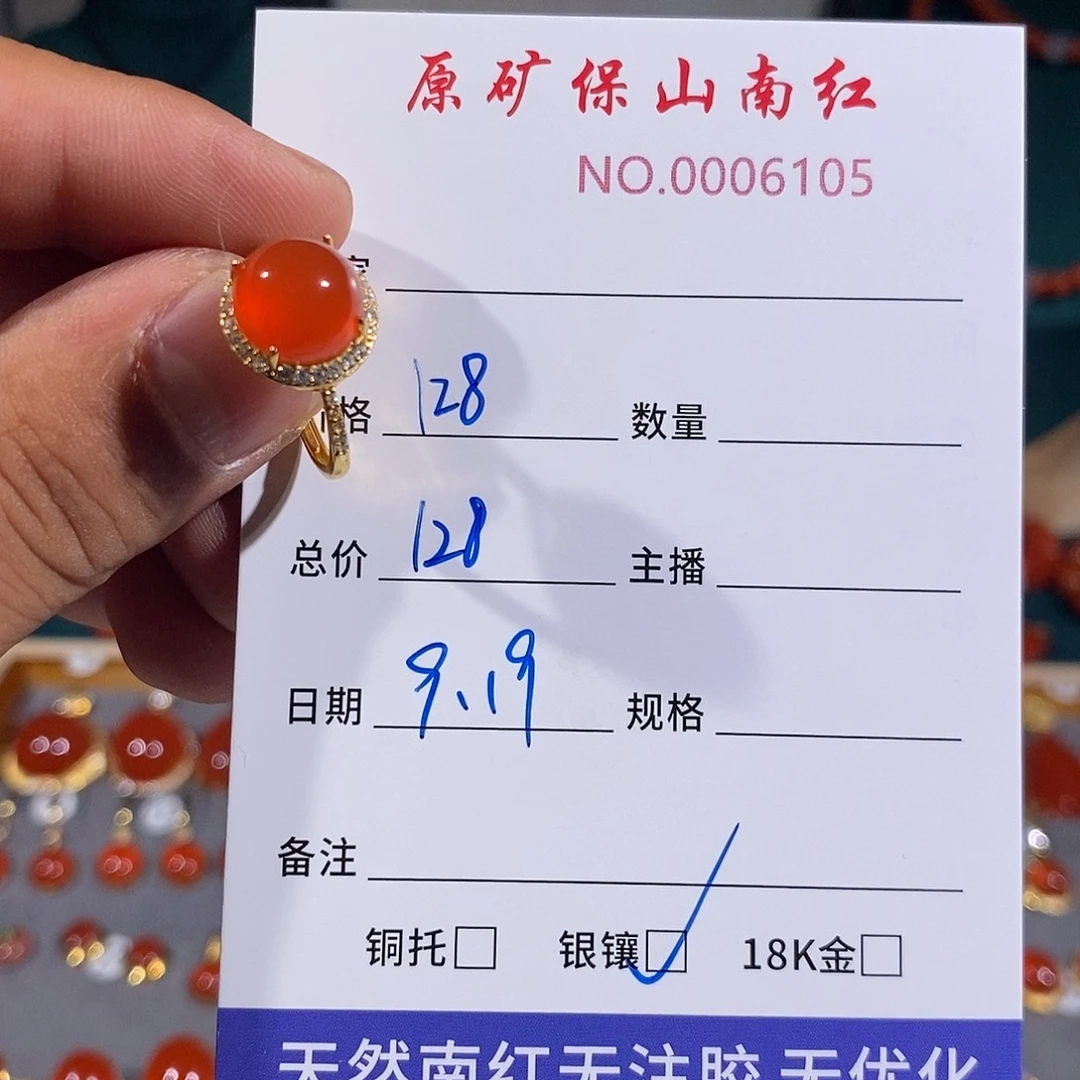 原矿保山南红
NO.0006105
格 128 数量
总价 128 主播
日期 9.19 规格
备注
铜托□ 银镶□✓ 18K金□
天然南红无注胶 无优化